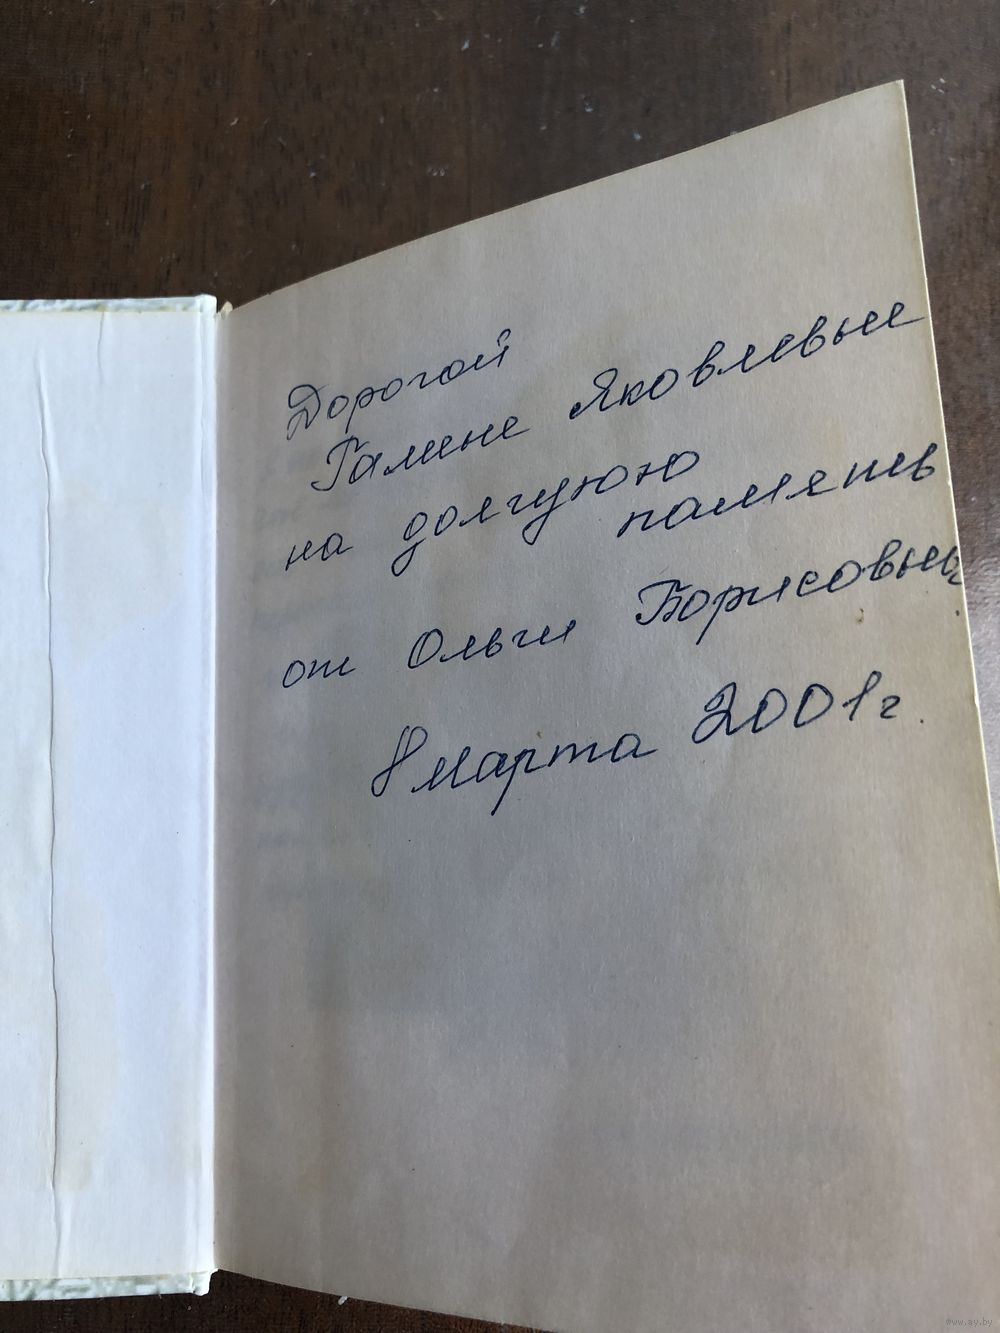 Дорогой
Галине Яковлевне
на долгую
память
от Ольги Борисовны.
8 марта 2001 г.
www.ay.by